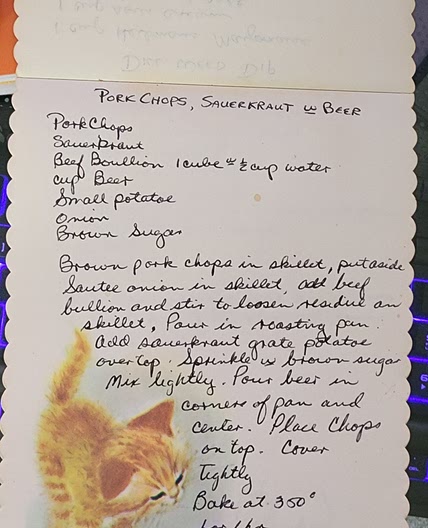 Dill Weed Dip
PORK CHOPS, SAUERKRAUT w BEER
Pork Chops
Sauerkraut
Beef Boullion 1 cube w ½ cup water
cup Beer
Small potatoe
Onion
Brown Sugar
Brown pork chops in skillet, put aside
Sautee onion in skillet, add beef
bullion and stir to loosen residue on
skillet, Pour in roasting pan.
Add sauerkraut grate potatoe
over top. Sprinkle w brown sugar
Mix lightly. Pour beer in
corners of pan and
center. Place Chops
on top. Cover
Tightly
Bake at 350°